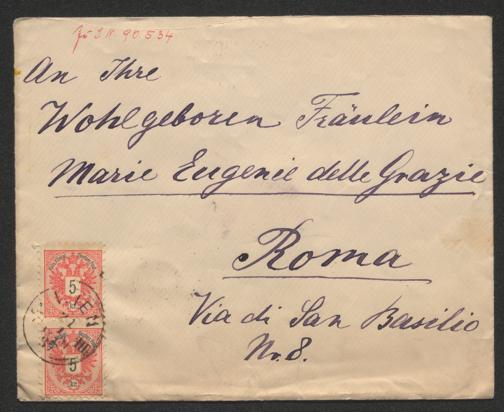 Zu I.N. 90.534
An Ihre
Wohlgeboren Fräulein
Marie Eugenie delle Grazie
Roma
Via di San Basilio
Nr. 8.
5
5